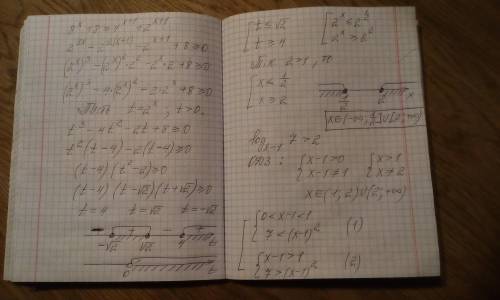 8ˣ + 8 ≥ 4ˣ⁺¹ + 2ˣ⁺¹
2³ˣ - 2²⁽ˣ⁺¹⁾ - 2ˣ⁺¹ + 8 ≥ 0
(2ˣ)³ - (2ˣ)² · 2² - 2ˣ · 2 + 8 ≥ 0
(2ˣ)³ - 4 · (2ˣ)² - 2 · 2ˣ + 8 ≥ 0
t = 2ˣ, t > 0.
t³ - 4t² - 2t + 8 ≥ 0
t²(t - 4) - 2(t - 4) ≥ 0
(t - 4)(t² - 2) ≥ 0
(t - 4)(t - √2)(t + √2) ≥ 0
t = 4 t = √2 t = -√2
- + - +
-√2 √2 4 t
0 t
[ t ≤ √2
t ≥ 4
[ 2ˣ ≤
2ˣ ≥
Т.к. 2 > 1, то
[ x ≤ 1/2
x ≥ 2
1/2 2 x
x ∈ (-∞; 1/2] ∪ [2; +∞)
log ₓ₋₁ 7 > 2
ОДЗ: { x - 1 > 0
x - 1 ≠ 1
{ x > 1
x ≠ 2
x ∈ (1; 2) ∪ (2; +∞)
[ { 0 < x - 1 < 1
7 < (x - 1)² (1)
{ x - 1 > 1
7 > (x - 1)² (2)